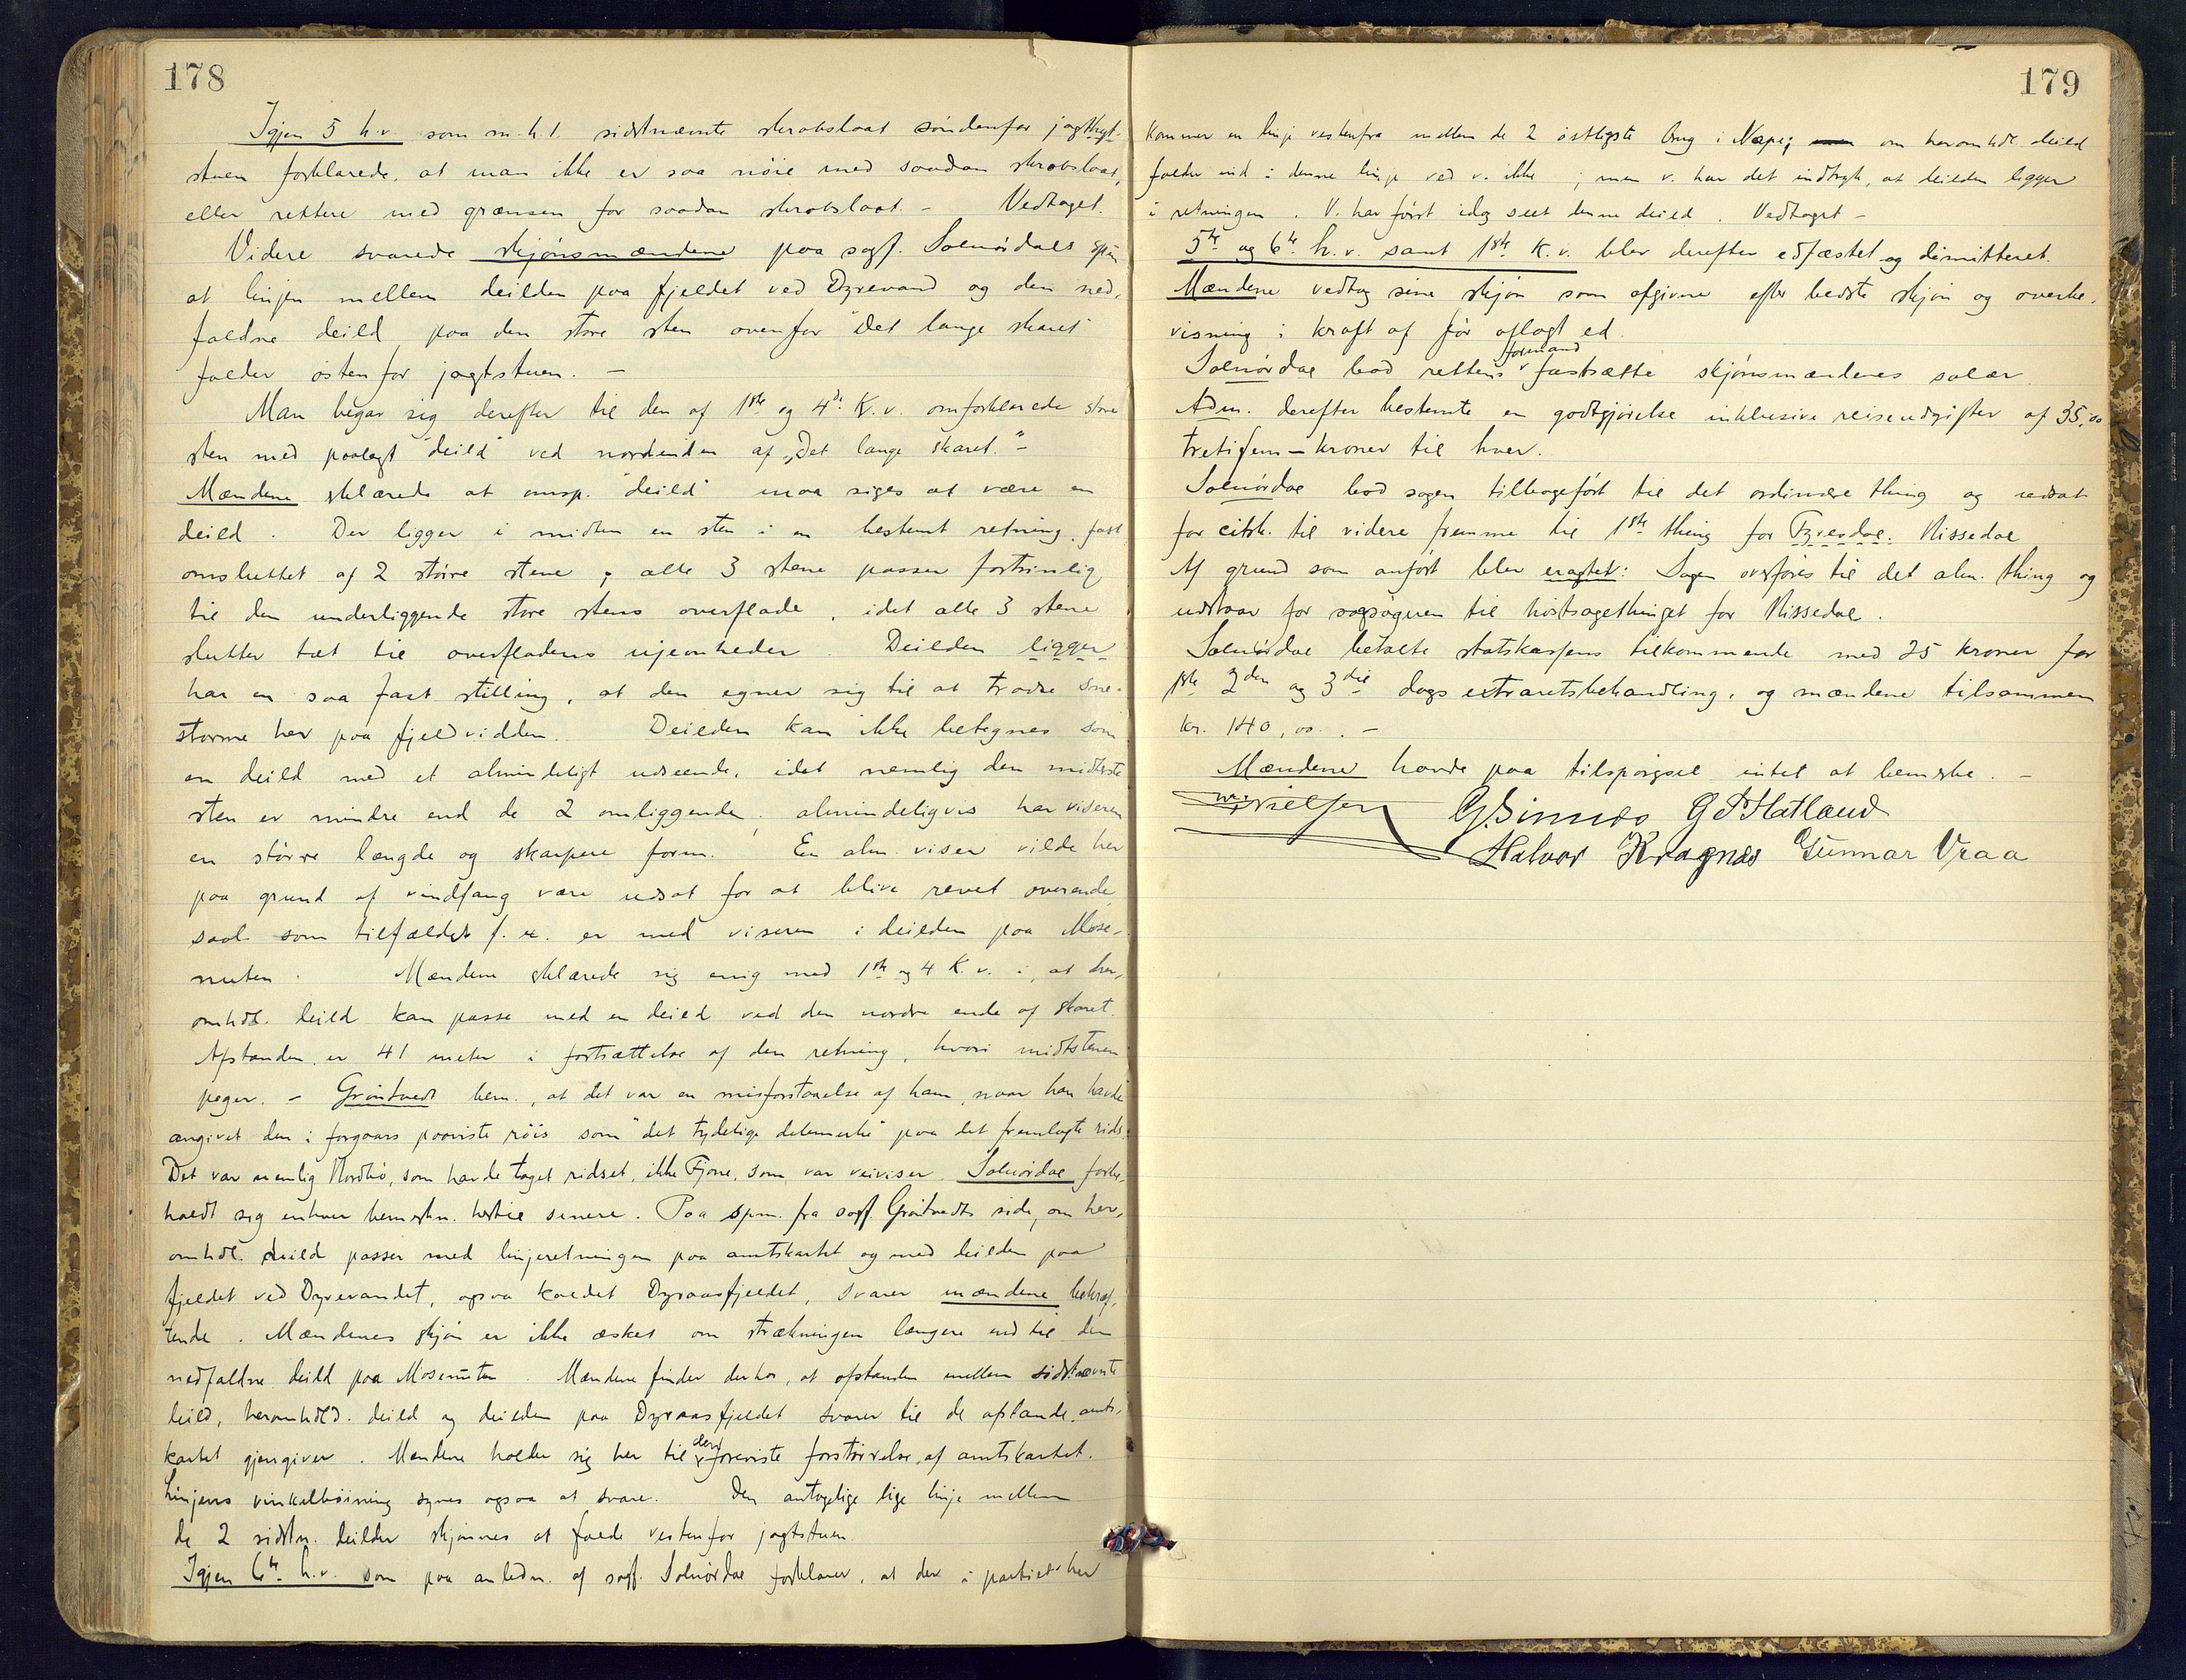 178
Igjen 5 h.v. som m.h.t. sidstnævnte skrabslaat søndenfor jagthyt-
stuen forklarede, at man ikke er saa nøie med saadan skrabslaat,
eller rettere med grænsen for saadan skrabslaat – Vedtaget.
Videre svarede skjønsmændene paa sagf. Solnørdals spm.
at linjen mellem deilden paa fjeldet ved Dyrevand og den ned-
faldne deild paa den store sten ovenfor "Det lange skaret"
falder østenfor jagtstuen. –
Man begav sig derefter til den af 1ste og 4de K.v. omforklarede store
sten med paalagt "deild" ved nordenden af "Det lange skaret." –
Mændene erklærede at omsp. "deild" maa siges at være en
deild. Der ligger i midten en sten i en bestemt retning, fast
omsluttet af 2 større stene; alle 3 stene passer fortrinlig
til den underliggende store stens overflade, idet alle 3 stene
slutter tæt til overfladens ujevnheder. Deilden ligger
har en saa fast stilling, at den egner sig til at trodse sne-
storme her paa fjeldvidden. Deilden kan ikke betegnes som
en deild med et almindeligt udseende, idet nemlig den midterste
sten er mindre end de 2 omliggende; almindeligvis har viseren
en større længde og skarpere form. En alm. viser vilde her
paa grund af vindfang være udsat for at blive revet overende,
saal. som tilfældet f. ex. er med viseren i deilden paa Mose-
nuten. Mændene erklærede sig enig med 1ste og 4 K.v. i, at her-
omhdl. deild kan passe med en deild ved den nordre ende af skaret.
Afstanden er 41 meter i fortsættelse af den retning, hvori midtstenen
peger. – Grøntvedt bem., at det var en misforstaaelse af ham, naar han havde
angivet den i forgaars paaviste røis som "det tydelige delemerke" paa det fremlagte rids.
Det var nemlig Nordbø, som havde taget ridset, ikke Fjone, som var veiviser. Solnørdal forbe-
holdt sig enhver bemerkn. hertil senere. Paa spm. fra sagf. Grøntvedts side, om her-
omhdl. deild passer med linjeretningen paa amtskartet og med deilden paa
fjeldet ved Dyrevandet, ogsaa kaldet Dyraasfjeldet, svarer mændene bekræf-
tende. Mændenes skjøn er ikke æsket om strækningen længere end til den
nedfaldne deild paa Mosenuten. Mændene finder derhos, at afstanden mellem sidstnævnte
deild, heromhdld. deild og deilden paa Dyraasfjeldet svarer til de afstande, amts-
kartet gjengiver. Mændene holder sig her til den foreviste forstørrelse af amtskartet.
Linjens vinkelbøining synes ogsaa at svare. Den antagelige lige linje mellem
de 2 sidstn. deilder skjønnes at falde vestenfor jagtstuen.
Igjen 6te h.v. som paa anledn. af sagf. Solnørdal forklarer, at der i partiet her
179
kommer en linje vestenfra mellem de 2 østligste brug i Næpe; om heromhdl. deild
falder ind i denne linje ved v. ikke; men v. har det indtryk, at deilden ligger
i retningen. V. har først idag seet denne deild. Vedtaget –
5te og 6te h.v. samt 1ste K.v. blev derefter edfæstet og dimitteret.
Mændene vedtog sine skjøn som afgivne efter bedste skjøn og overbe-
visning i kraft af før aflagt ed.
Solnørdal bad rettens formand fastsætte skjønsmændenes salær
Adm. derefter bestemte en godtgjørelse inklusive reiseudgifter af 35,00
tretifem – kroner til hver.
Solnørdal bad sagen tilbageført til det ordinære thing og udsat
for citsk. til videre fremme til 1ste thing for Fyresdal. Nissedal
Af grund som anført blev eragtet: Sagen overføres til det alm. thing og
udstaar for sagsøgeren til høstsagethinget for Nissedal.
Solnørdal betalte statskassens tilkommende med 25 kroner for
1ste 2den og 3die dags extraretsbehandling, og mændene tilsammen
kr. 140,00. –
Mændene havde paa tilspørgsel intet at bemerke. –
Nielsen G. Simnes G P Hatland
Halvor Kragnæs Gunnar Vraa